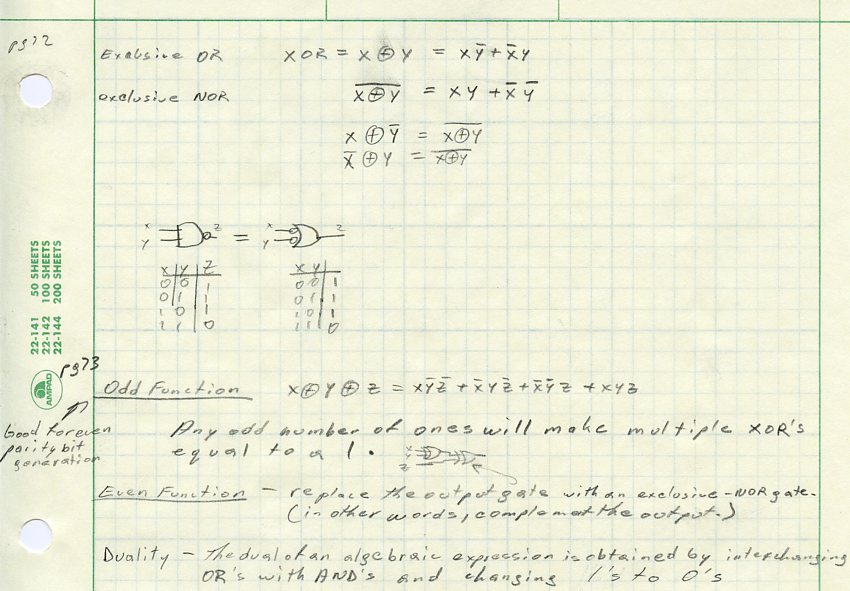 pg72
Exclusive OR XOR = X ⊕ Y = XȲ + X̄Y
exclusive NOR X̅⊕̅Y̅ = XY + X̄Ȳ
X ⊕ Ȳ = X̅⊕̅Y̅
X̄ ⊕ Y = X̅⊕̅Y̅
X Z = X Z
Y Y
X Y Z X Y
0 0 1 0 0 1
0 1 1 0 1 1
1 0 1 1 0 1
1 1 0 1 1 0
22-141 50 SHEETS
22-142 100 SHEETS
22-144 200 SHEETS
AMPAD
pg73
Odd Function X ⊕ Y ⊕ Z = XȲZ̄ + X̄YZ̄ + X̄ȲZ + XYZ
Good for even
parity bit
generation
Any odd number of ones will make multiple XOR's
equal to a 1.
X
Y
Z
Even Function - replace the output gate with an exclusive-NOR gate.
(in other words, complemat the output.)
Duality - The dual of an algebraic expression is obtained by interchanging
OR's with AND's and changing 1's to 0's